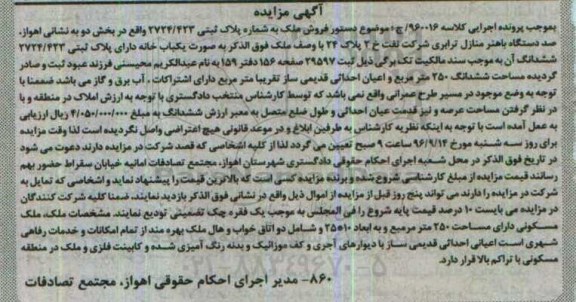 آگهی مزایده
بموجب پرونده اجرایی کلاسه ۹۶۰۰۱۶/ج۱ موضوع دستور فروش ملک به شماره پلاک ثبتی ۲۷۲۴/۴۲۳ واقع در بخش دو به نشانی اهواز،
صد دستگاه باهنر منازل ترابری شرکت نفت خ ۳ پلاک ۲۴ با وصف ملک فوق الذکر به صورت یکباب خانه دارای پلاک ثبتی ۲۷۲۴/۴۲۳
ششدانگ آن به موجب سند مالکیت تک برگی ذیل ثبت ۲۹۵۹۷ صفحه ۱۵۶ دفتر ۱۵۹ به نام عبدالکریم محیسنی فرزند عبود ثبت و صادر
گردیده مساحت ششدانگ ۲۵۰ متر مربع و اعیان احداثی قدیمی ساز تقریبا متر مربع دارای اشتراکات ، آب برق و گاز می باشد ضمنا با
توجه به وضع موجود در مسیر طرح عمرانی واقع نمی باشد که توسط کارشناس منتخب دادگستری با توجه به ارزش املاک در منطقه و با
در نظر گرفتن مساحت عرصه و نیز قدمت عیان احداثی و طول ضلع متصل به معبر ارزش ششدانگ به مبلغ ۴/۰۵۰/۰۰۰/۰۰۰ ریال ارزیابی
به عمل آمده است با توجه به اینکه نظریه کارشناس به طرفین ابلاغ و در موعد قانونی هیچ اعتراضی واصل نگردیده است لذا وقت مزایده
برای روز سه شنبه مورخ ۹۶/۹/۱۴ ساعت ۹ صبح تعیین می گردد لذا از کلیه اشخاصی که قصد شرکت در مزایده دارند دعوت می شود
در تاریخ فوق الذکر در محل شعبه اجرای احکام حقوقی دادگستری شهرستان اهواز، مجتمع تصادفات امانیه خیابان سقراط حضور بهم
رسانند قیمت مزایده از مبلغ کارشناسی شروع شده و برنده مزایده کسی است که بالاترین قیمت را پیشنهاد نماید و اشخاصی که تمایل به
شرکت در مزایده را دارند می تواند پنج روز قبل از مزایده از اموال ذیل واقع در نشانی فوق الذکر بازدید نمایند، ضمنا کلیه شرکت کنندگان
در مزایده می بایست ۱۰ درصد قیمت پایه شروع را فی المجلس به موجب یک فقره چک تضمینی تودیع نمایند. مشخصات ملک، ملک
مسکونی دارای مساحت ۲۵۰ متر مربع و به ابعاد ۱۰*۲۵ و شامل دو اتاق خواب و هال ملک بهره مند از تمام امکانات و خدمات رفاهی
شهری است اعیانی احداثی قدیمی ساز با دیوارهای آجری و کف موزائیک و بدنه رنگ آمیزی شده و کابینت فلزی و ملک در منطقه
مسکونی با تراکم بالا قرار دارد.
۸۶۰- مدیر اجرای احکام حقوقی اهواز، مجتمع تصادفات